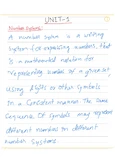 UNIT-1
Number System:
A number system is a writing
system for expressing numbers, that
is a mathematical notation for
representing numbers of a given set,
using digits or other symbols
in a consistent manner. The same
sequence of symbols may represent
different numbers in different
number systems.